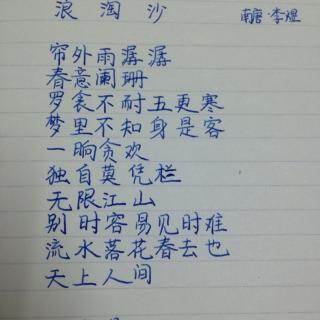 浪淘沙 南唐·李煜
帘外雨潺潺
春意阑珊
罗衾不耐五更寒
梦里不知身是客
一晌贪欢
独自莫凭栏
无限江山
别时容易见时难
流水落花春去也
天上人间